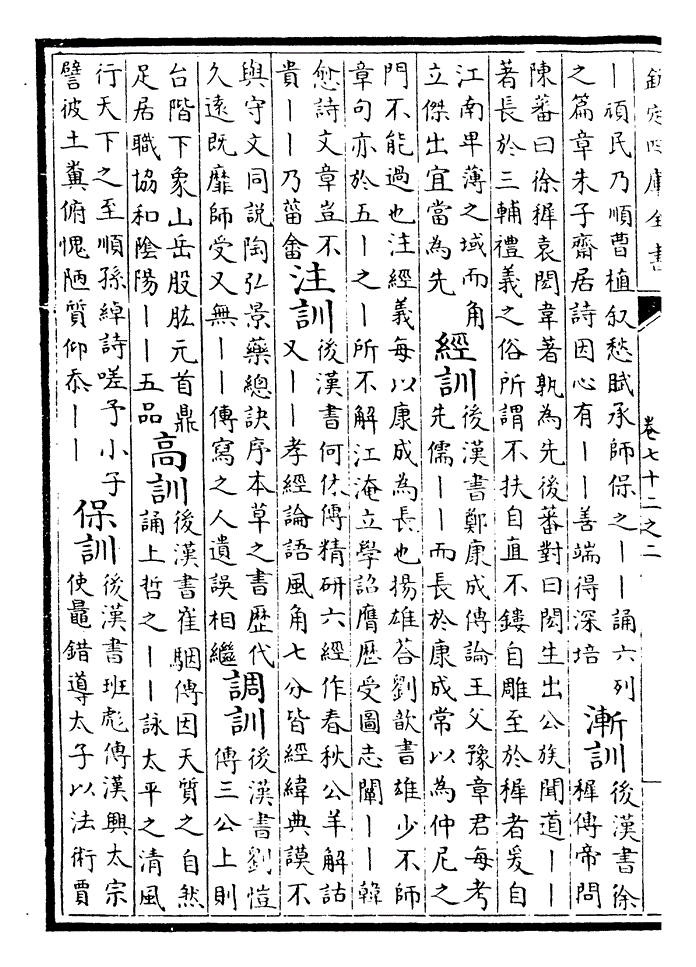 欽定四庫全書
卷七十二之二
丨頑民乃順曹植叙愁賦承師保之丨丨誦六列
之篇章朱子齋居詩因心有丨丨善端得深培
漸訓
後漢書徐
穉傳帝問
陳蕃曰徐穉袁閎韋著孰為先後蕃對曰閎生出公族聞道丨丨
著長於三輔禮義之俗所謂不扶自直不鏤自雕至於穉者爰自
江南卑薄之域而角
立傑出宜當為先
經訓
後漢書鄭康成傳論王父豫章君每考
先儒丨丨而長於康成常以為仲尼之
門不能過也注經義每以康成為長也揚雄荅劉歆書雄少不師
章句亦於五丨之丨所不解江淹立學詔膺歷受圖志闡丨丨韓
愈詩文章豈不
貴丨丨乃菑畬
注訓
後漢書何休傳精研六經作春秋公羊解詁
又丨丨孝經論語風角七分皆經緯典謨不
與守文同說陶弘景藥總訣序本草之書歷代
久遠既靡師受又無丨丨傳寫之人遺誤相繼
調訓
後漢書劉愷
傳三公上則
台階下象山岳股肱元首鼎
足居職協和陰陽丨丨五品
高訓
後漢書崔駰傳因天質之自然
誦上哲之丨丨詠太平之清風
行天下之至順孫綽詩嗟予小子
譬彼土糞俯愧陋質仰忝丨丨
保訓
後漢書班彪傳漢興太宗
使鼂錯導太子以法術賈